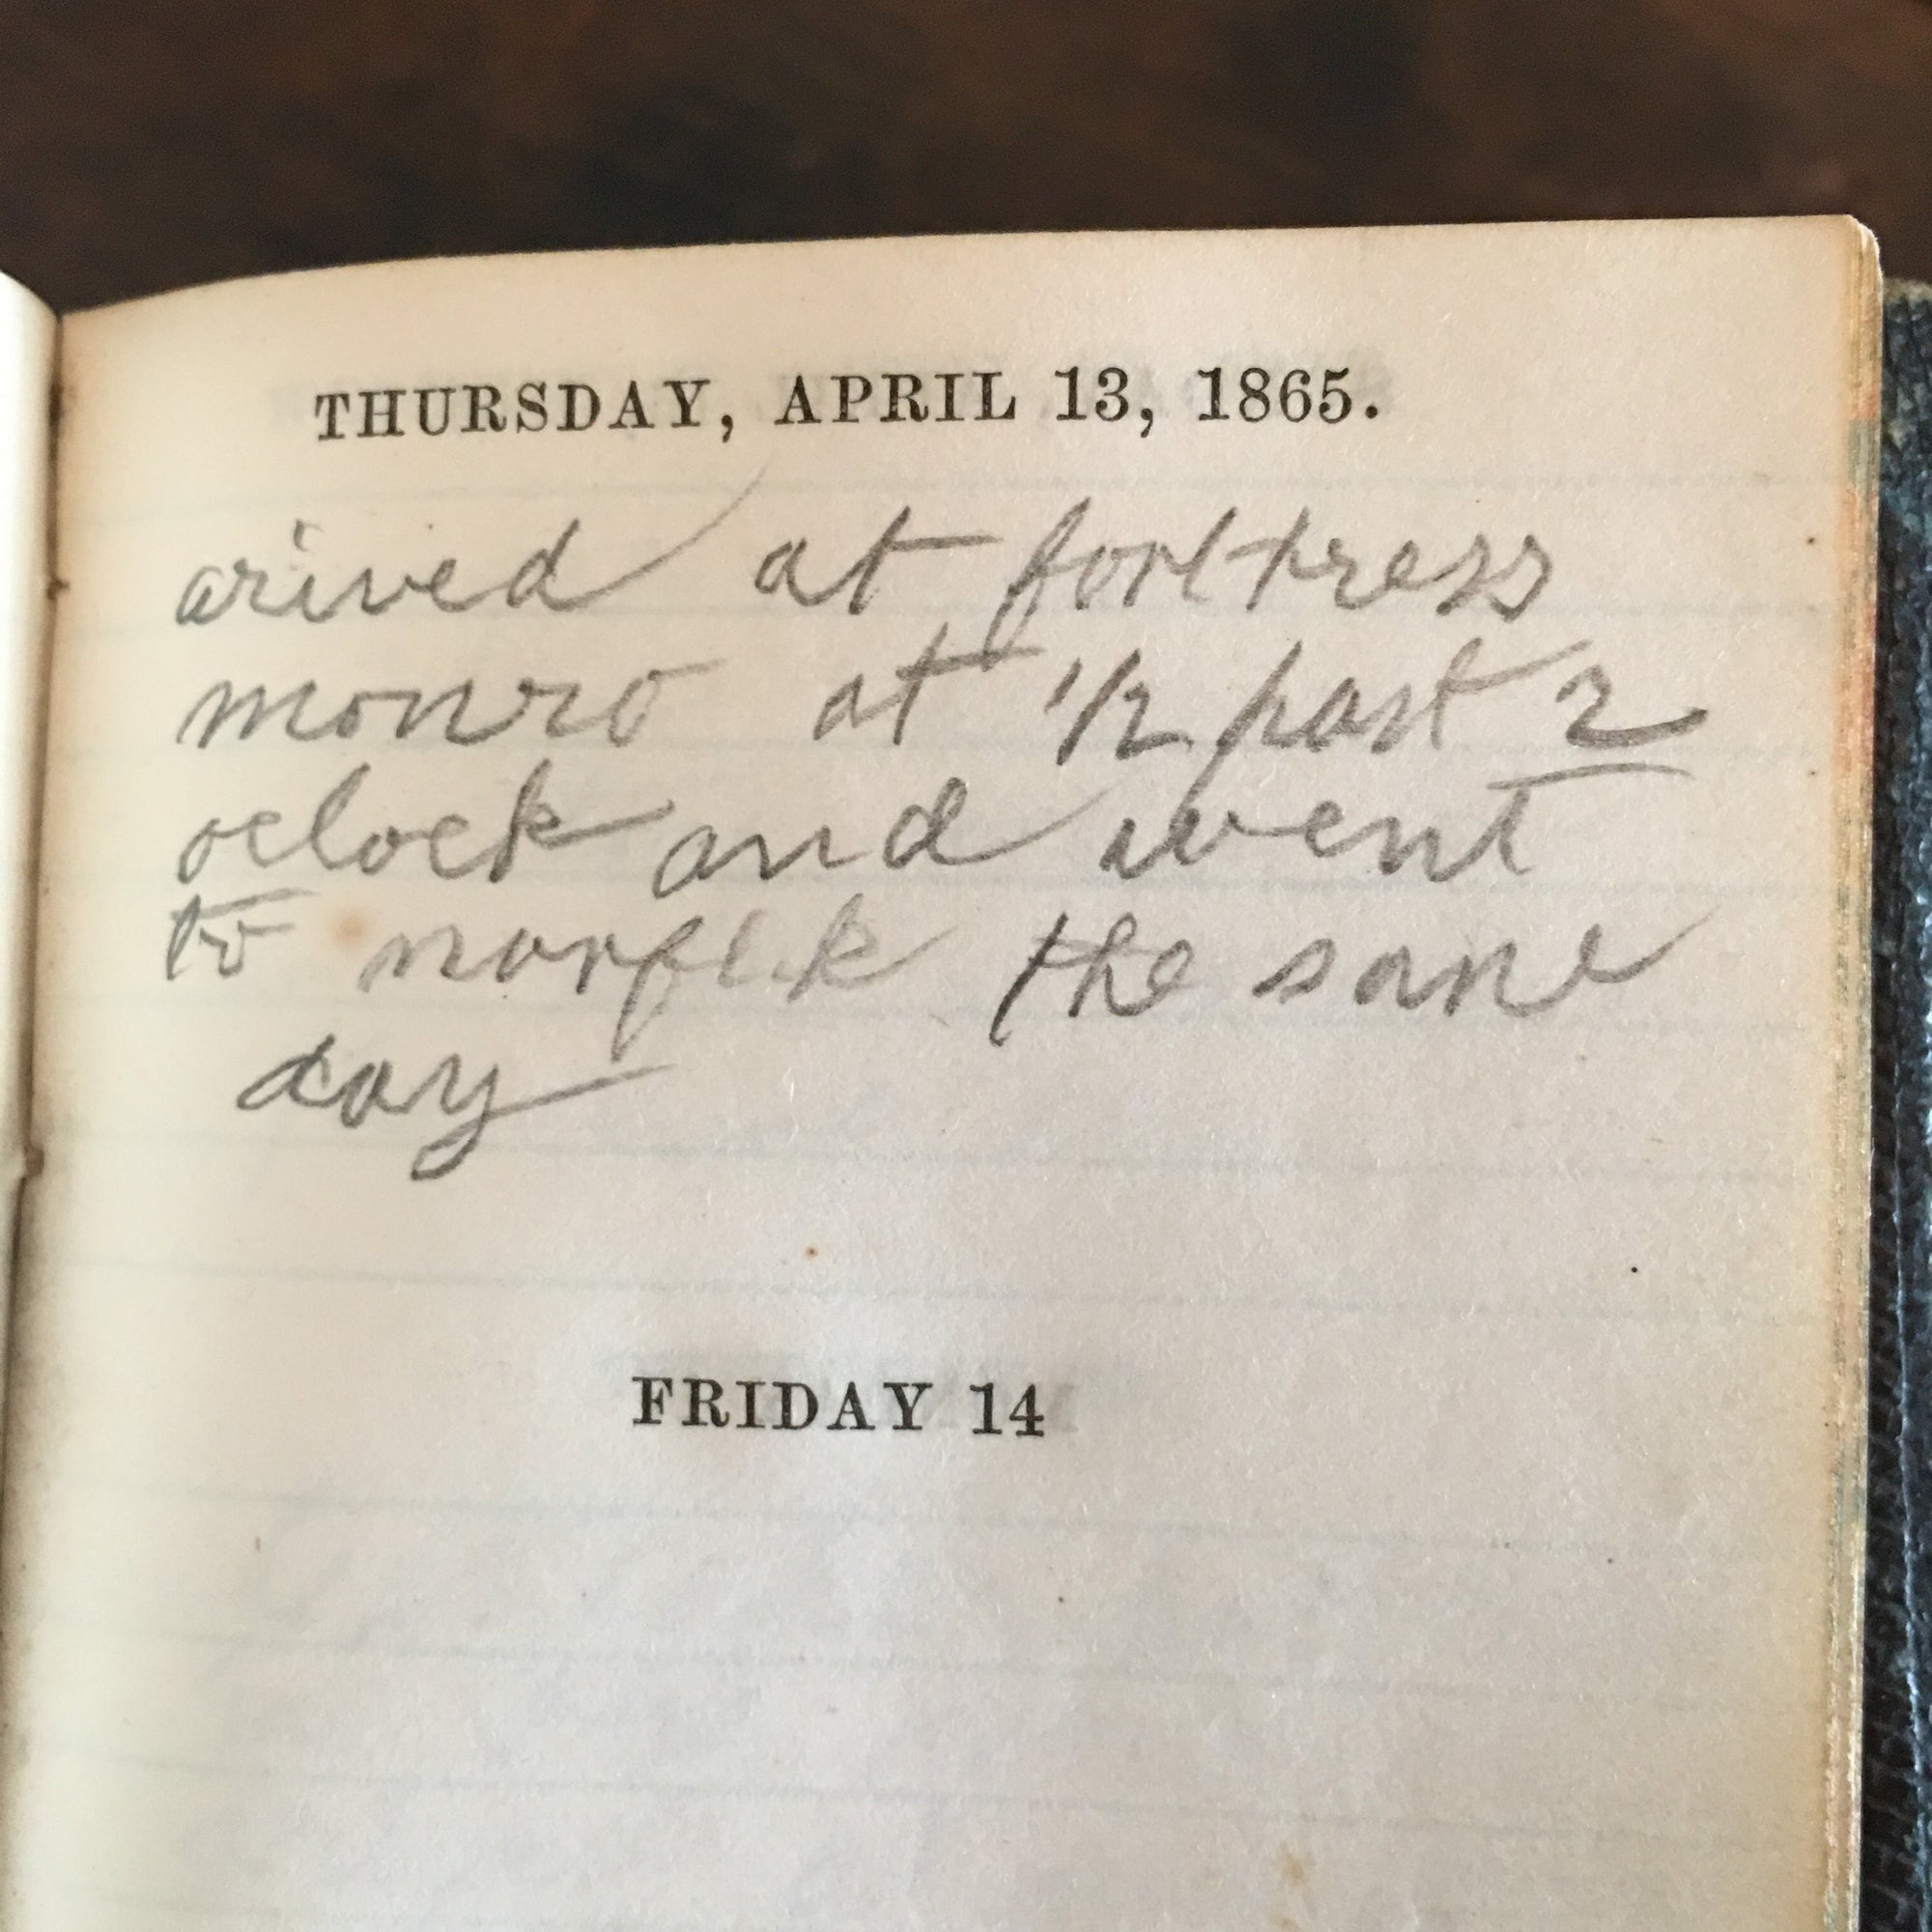 THURSDAY, APRIL 13, 1865.
arived at forttress
monro at 1/2 past 2
oclock and went
to norfolk the same
day
FRIDAY 14